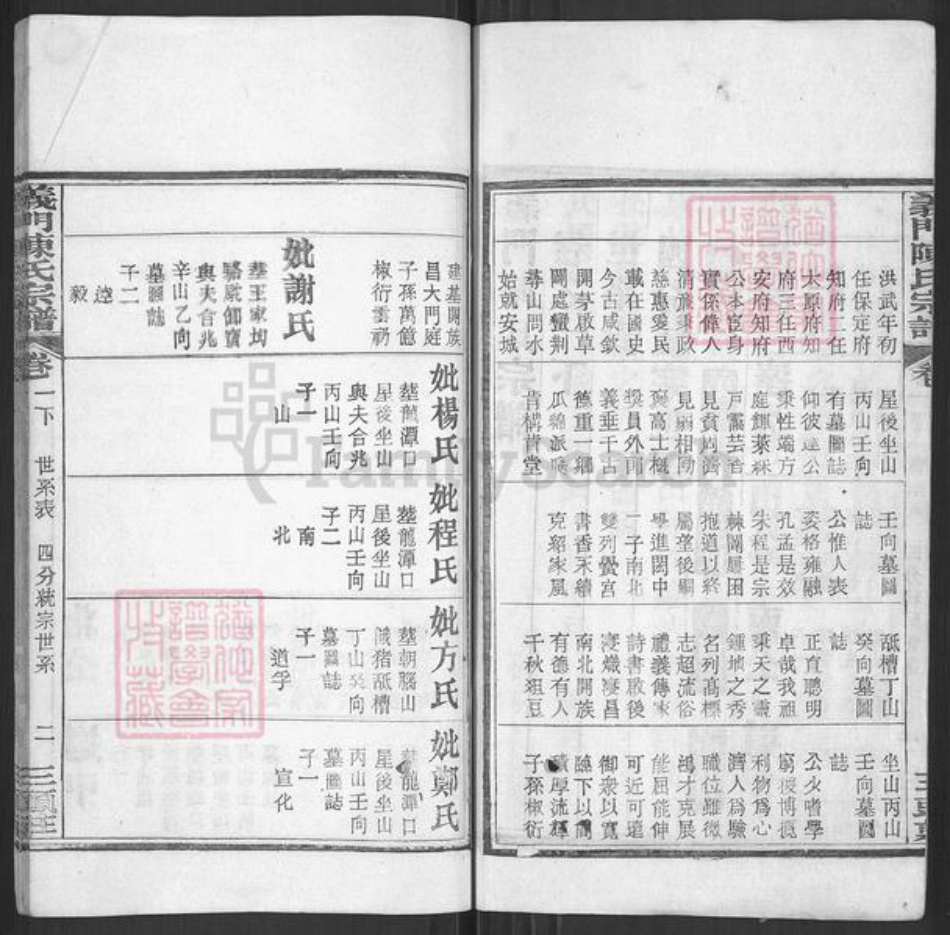 洪武年初
任保定府
知府二任
太原府知
府三任西
安府知府
公本宦身
實係偉人
清廉秉政
慈惠愛民
載在國史
今古咸欽
開茅啟草
闢處蠻荆
尋山問水
始就安城
星後坐山
丙山壬向
有墓圖誌
仰彼達公
秉性端方
庭輝萊綵
戶靄芸香
見貧周濟
見弱相助
褒高士概
獎員外

義垂千古
德重一鄉
瓜綿派衍
肯構肯堂
壬向墓圖
誌
公惟人表
姿格雍融
孔孟是效
朱程是宗
棘闈屢困
抱道以終
屬望後嗣
學進閩中
二子南北
雙列黌宮
書香不續
克紹家風
舐槽丁山
癸向墓圖
誌
正直聰明
卓哉我祖
秉天之靈
鍾地之秀
名列高標
志超流俗
禮義傳家
詩書啟後
寖熾寖昌
南北開族
有德有人
千秋俎豆
坐山丙山
壬向墓圖
誌
公少嗜學
窮彼博覽
利物為心
濟人為驗
職位雖微
鴻才克展
能屈能伸
可近可遠
御衆以寬
臨下以簡
積厚流輝
子孫椒衍
義門陳氏宗譜
卷一下
世系表
四分統宗世系
二
建基開族
昌大門庭
子孫萬億
椒衍雲礽
妣謝氏
塟王家坳
與夫合兆
辛山乙向
墓圖誌
子二
逵
毅
妣楊氏
塟龍潭口
星後坐山
與夫合兆
丙山壬向
子一
山
妣程氏
塟龍潭口
星後坐山
丙山壬向
子二
南
北
妣方氏
塟朝腦山
餓猪舐槽
丁山癸向
墓圖誌
子一
道孚
妣鄭氏
塟龍潭口
星後坐山
丙山壬向
墓圖誌
子一
宣化
FamilySearch